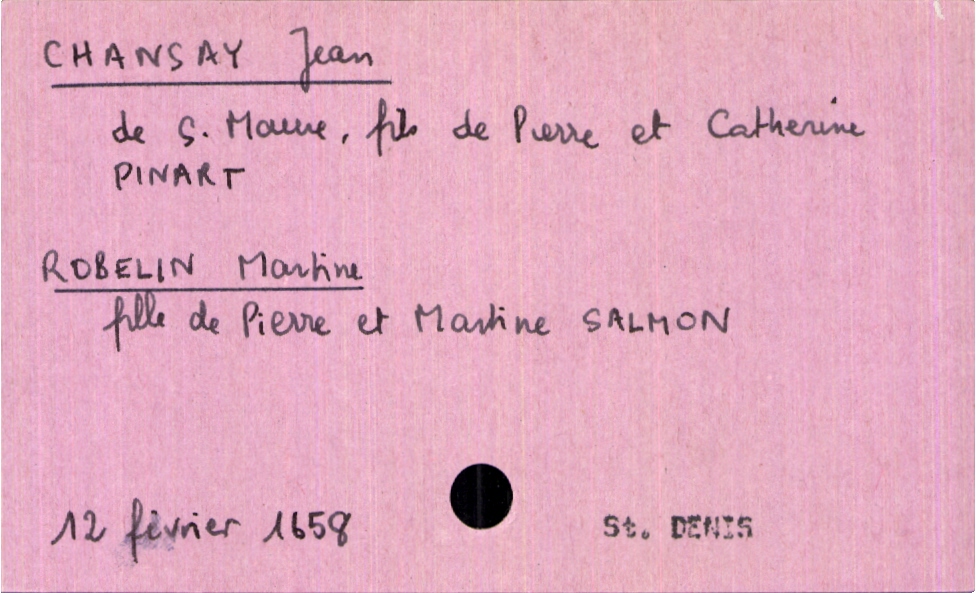 CHANSAY Jean
de S. Maure, fils de Pierre et Catherine
PINART
ROBELIN Martine
fille de Pierre et Martine SALMON
12 février 1658 St. DENIS